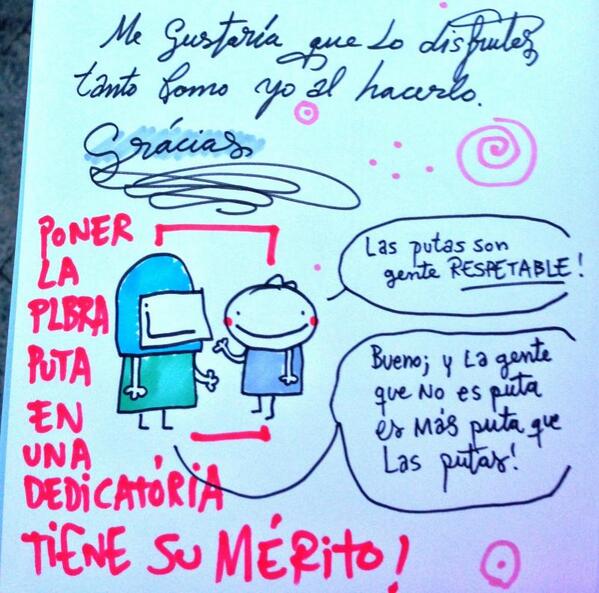 Me Gustaría que Lo disfrutes
tanto como yo al hacerlo.
Grácias
PONER
LA
PLBRA
PUTA
EN
UNA
DEDICATÓRIA
TIENE SU MÉRITO!
Las putas son
gente RESPETABLE!
Bueno; y La gente
que No es puta
es Más puta que
Las putas!